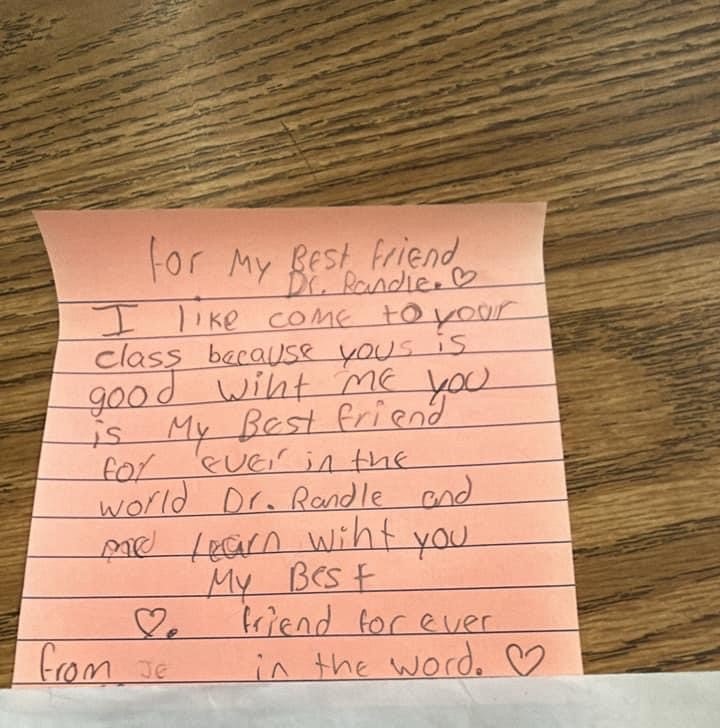 for My Best friend
Dr. Randle.♡
I like come to your
class because yous is
good wiht me you
is My Best friend
for ever in the
world Dr. Randle and
me learn wiht you
My Best
♡. friend for ever
from Je in the word. ♡